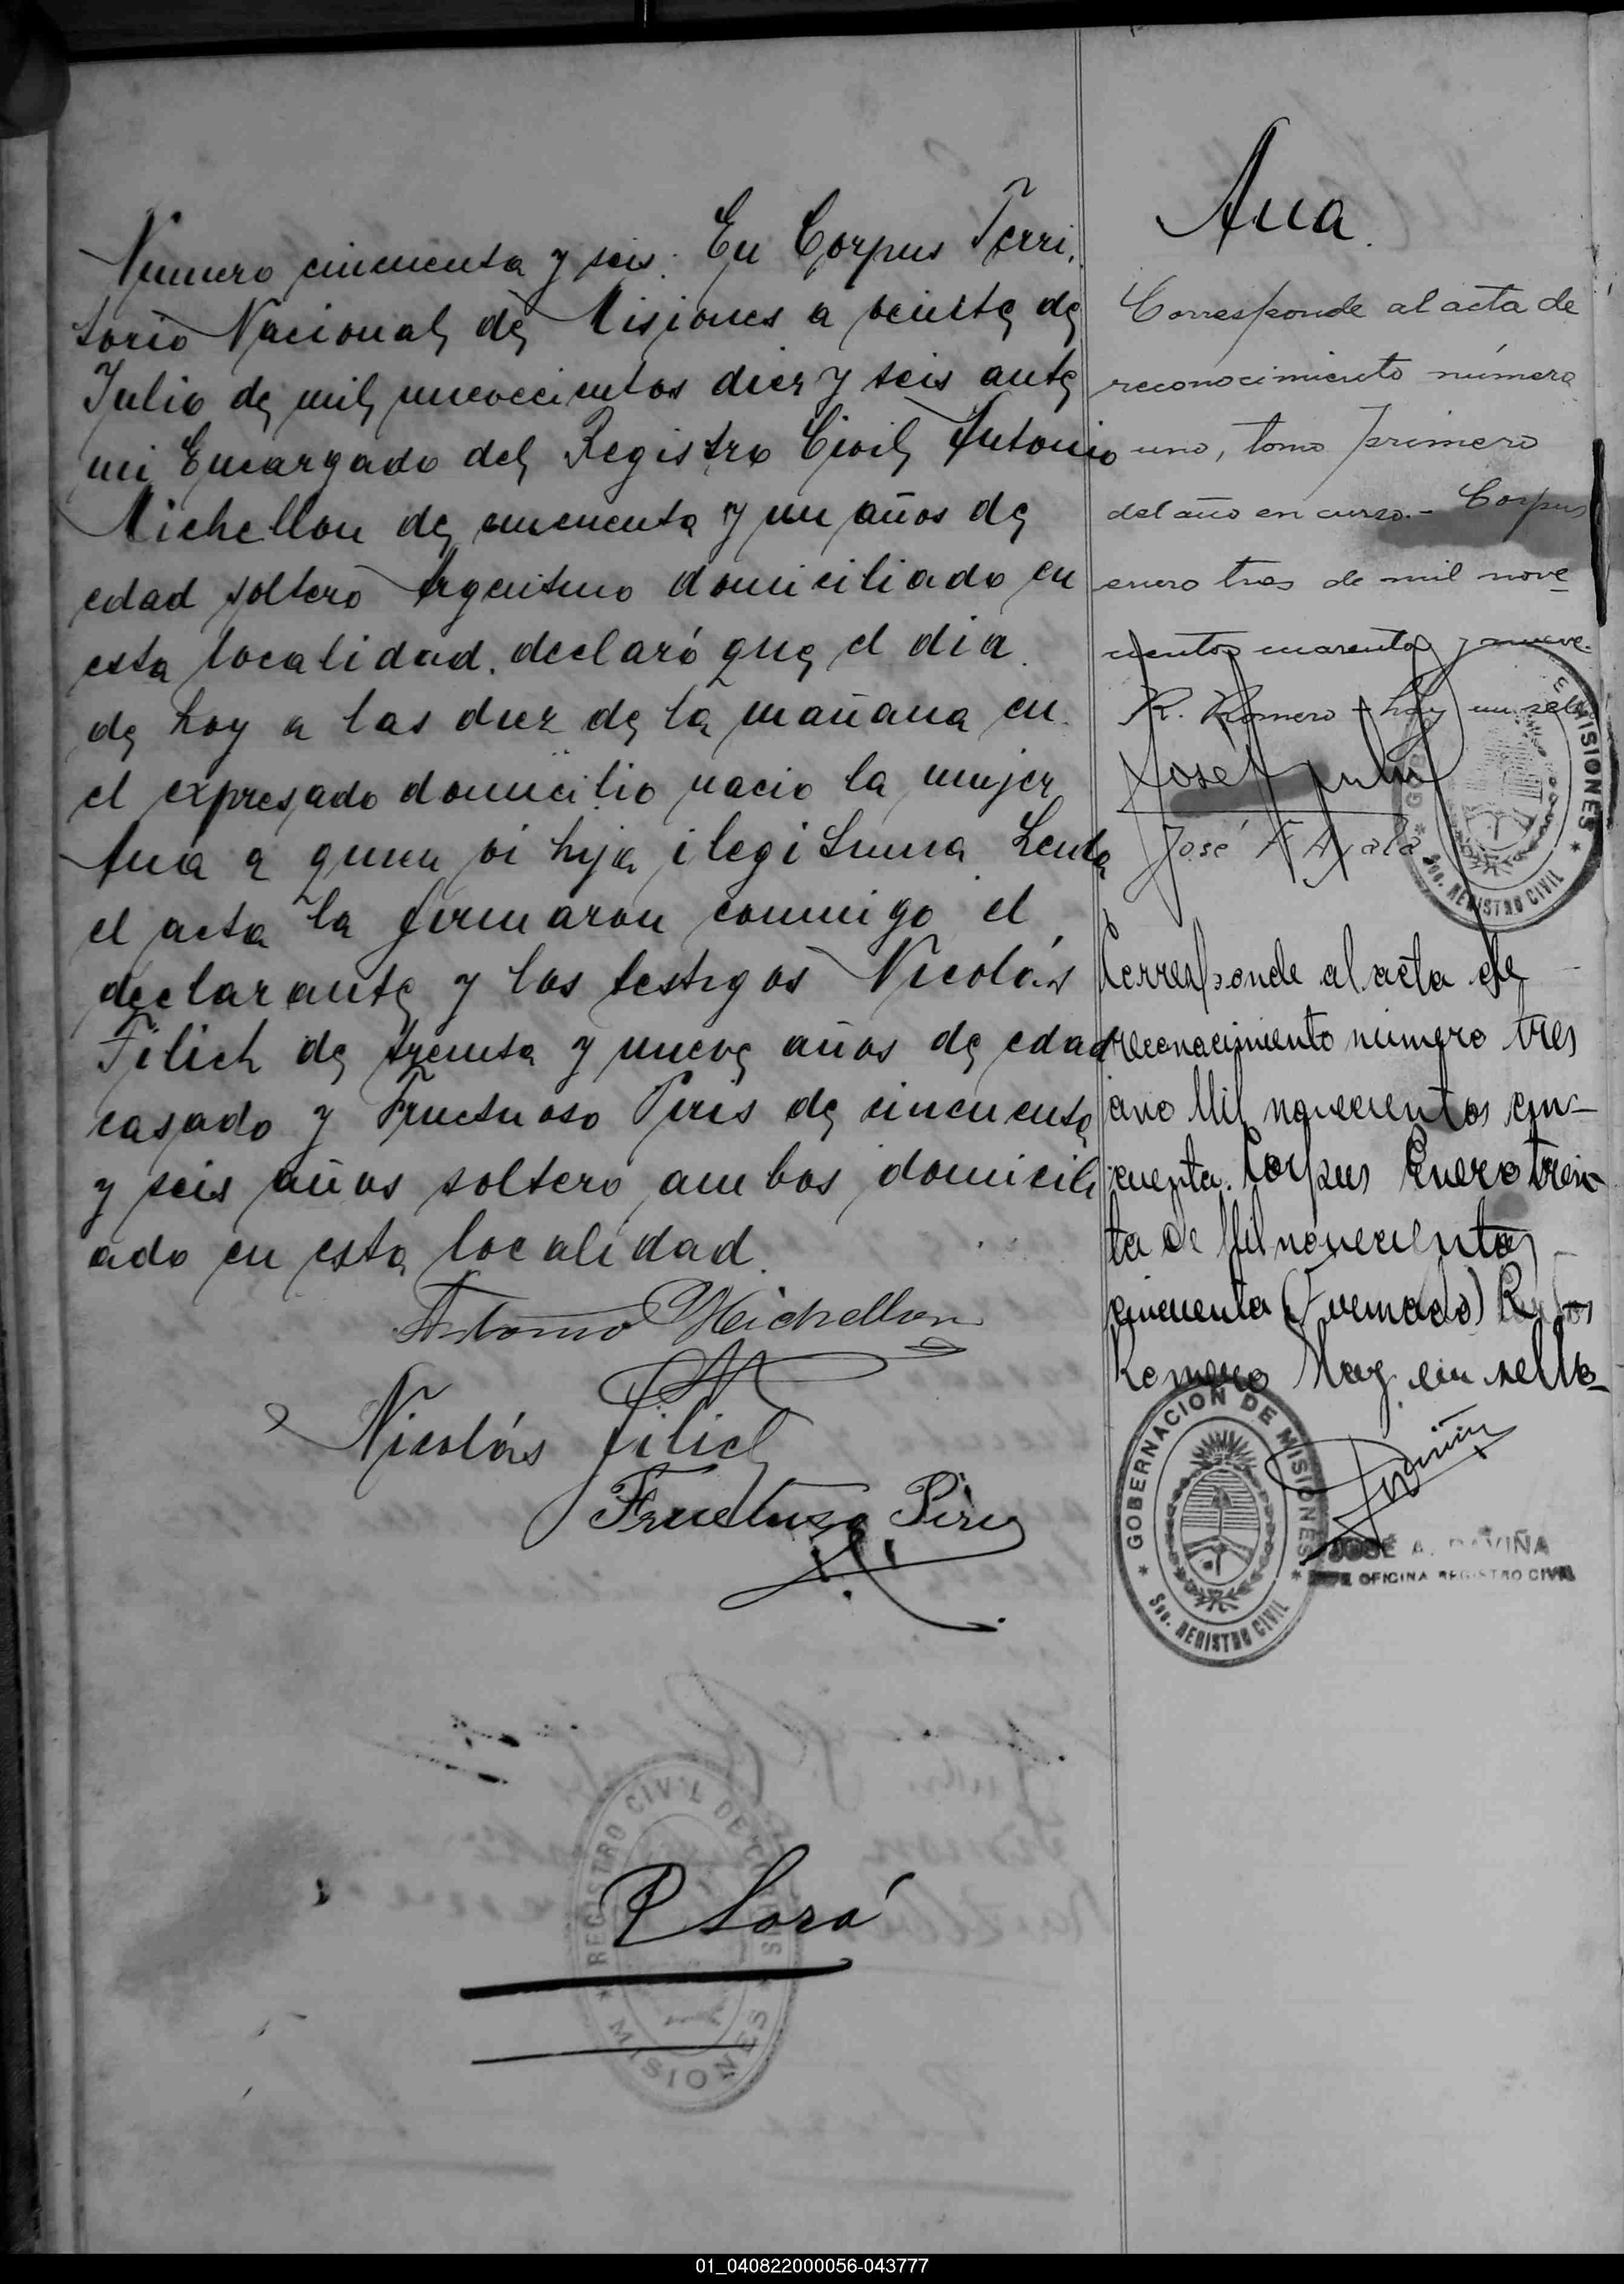 Numero cincuenta y seis. En Corpus Terri,
torio Nacional de Misiones a veinte de
Julio de mil novecientos diez y seis ante
mi Encargado del Registro Civil Antonio
Michellon de cincuenta y un años de
edad soltero Argentino domiciliado en
esta localidad. declaró que el dia
de hoy a las diez de la mañana en
el expresado domicilio nacio la mujer
Ana a quien vi hija ilegitima Leida
el acta la firmaron conmigo el
declarante y los testigos Nicolás
Filich de treinta y nueve años de edad
casado y Fructuoso Piris de cincuenta
y seis años soltero ambos domicili
ado en esta localidad.
Antonio Michellon
Nicolás Filich
Fructuoso Piris
REGISTRO CIVIL DE
MISIONES
P Lorá
Ana.
Corresponde al acta de
reconocimiento número
uno, tomo primero
del año en curso.- Corpus
enero tres de mil nove-
cientos cuarenta y nueve.
R. Romero - hay un sello
José F Ayala
MISIONES
Sec. REGISTRO CIVIL
Corresponde al acta de
reconocimiento número tres
año Mil novecientos cin-
cuenta. Corpus Enero trein
ta de Mil novecientos
cincuenta (Firmado)
Romero Hay un sello-
GOBERNACION DE MISIONES
Sec. REGISTRO CIVIL
JOSÉ A. DAVIÑA
JEFE OFICINA REGISTRO CIVIL
01_040822000056-043777